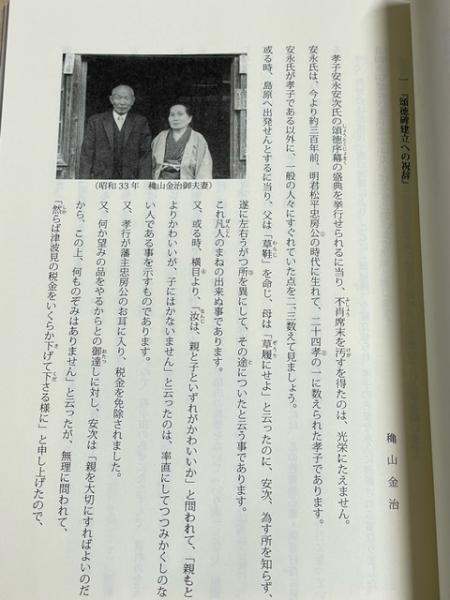 一 『頌徳碑建立への祝辞』
穐山金治
孝子安永安次氏の頌徳序幕の盛典を挙行せられるに当り、不肖席末を汚すを得たのは、光栄にたえません。
安永氏は、今より約三百年前、明君松平忠房公の時代に生れて、二十四孝の一に数えられた孝子であります。
安永氏が孝子である以外に、一般の人々にすぐれていた点を二、三数えて見ましょう。
或る時、島原へ出発せんとするに当り、父は「草鞋」を命じ、母は「草履にせよ」と云ったのに、安次、為す所を知らず、
遂に左右うがつ所を異にして、その途についたと云う事であります。
これ凡人のまねの出来ぬ事であります。
又、或る時、横目より、「汝は、親と子といずれがかわいいか」と問われて、「親もと
よりかわいいが、子にはかないません」と云ったのは、率直にしてつつみかくしのな
い人である事を示すものであります。
又、孝行が藩主忠房公のお耳に入り、税金を免除されました。
又、何か望みの品をやるからとの御達しに対し、安次は「親を大切にすればよいのだ
から、この上、何ものぞみはありません」と云ったが、無理に問われて、
「然らば津波見の税金をいくらか下げて下さる様に」と申し上げたので、
（昭和33年 穐山金治御夫妻）